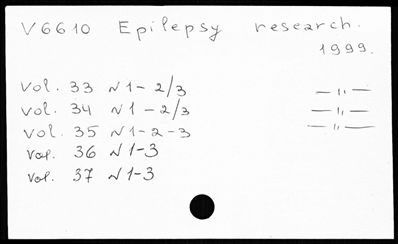 V6610 Epilepsy research.
1999.
Vol. 33 N 1 - 2/3 — ıı —
Vol. 34 N 1 - 2/3 — ıı —
Vol. 35 N 1 - 2 - 3 — ıı —
Vol. 36 N 1-3
Vol. 37 N 1-3